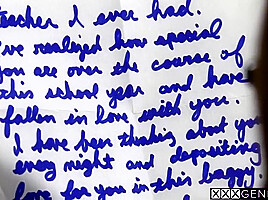 teacher I ever had.
I've realized how special
you are over the course of
this school year and have
fallen in love with you.
I have been thinking about you
every night and depositing
love for you in this baggy.
XXXGEN